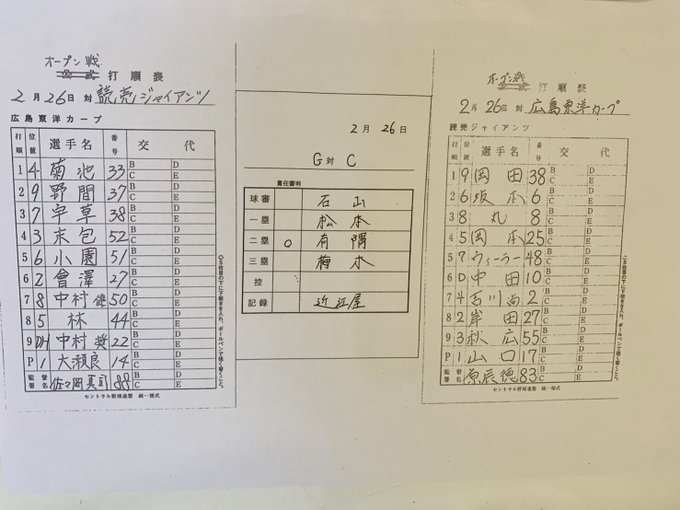 オープン戦
公式 打順表
2月26日 対 読売ジャイアンツ
広島東洋カープ
打順 位置 選手名 番号 交代
1 4 菊池 33 B D C E
2 9 野間 37 B D C E
3 7 宇草 38 B D C E
4 3 末包 52 B D C E
5 6 小園 51 B D C E
6 2 會澤 27 B D C E
7 8 中村健 50 B D C E
8 5 林 44 B D C E
9 DH 中村奨 22 B D C E
P 1 大瀬良 14 B D C E
監督署名 佐々岡真司 88 B D C E
セントラル野球連盟 統一様式
2月26日
G対C
責任審判
球審 石山
一塁 松本
二塁 ○ 有隅
三塁 梅木
控
記録 近江屋
オープン戦
公式 打順表
2月26日 対 広島東洋カープ
読売ジャイアンツ
打順 位置 選手名 番号 交代
1 9 岡田 38 B D C E
2 6 坂本 6 B D C E
3 8 丸 8 B D C E
4 5 岡本 25 B D C E
5 7 ウィーラー 48 B D C E
6 D 中田 10 B D C E
7 4 古川尚 2 B D C E
8 2 岸田 27 B D C E
9 3 秋広 55 B D C E
P 1 山口 17 B D C E
監督署名 原辰徳 83 B D C E
セントラル野球連盟 統一様式